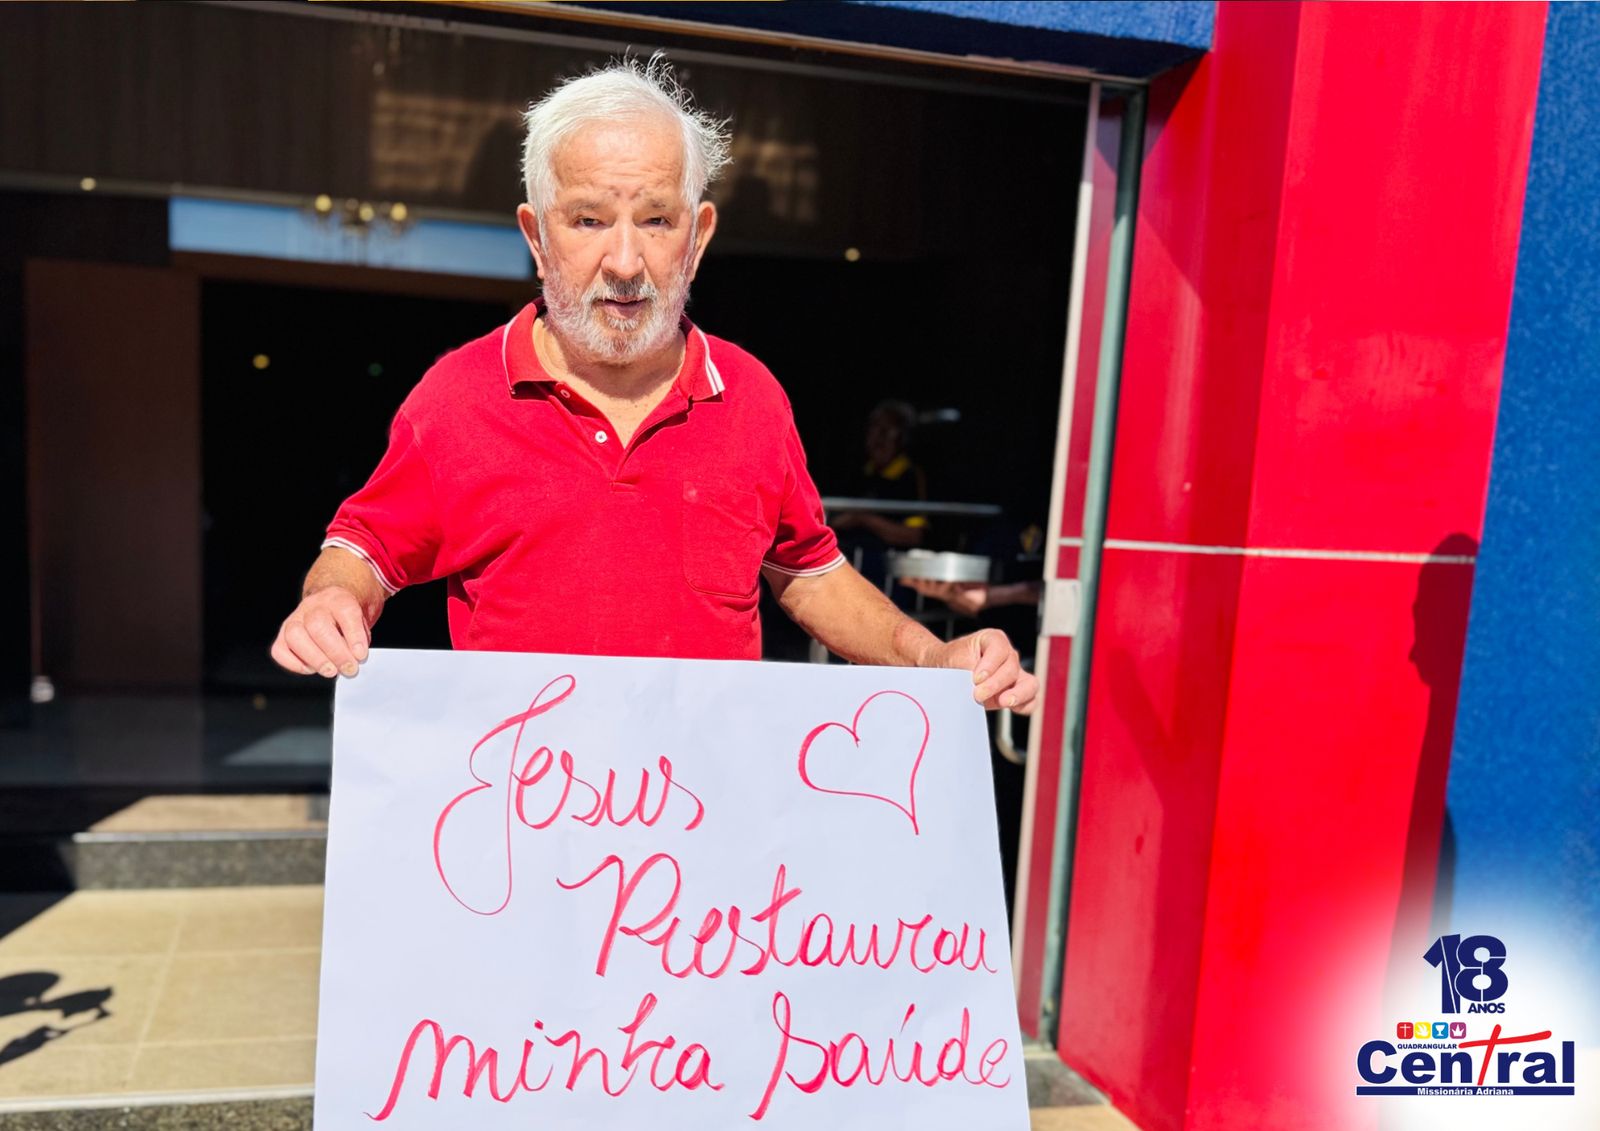 Jesus
Restaurou
minha Saúde
18
ANOS
QUADRANGULAR
Central
Missionária Adriana